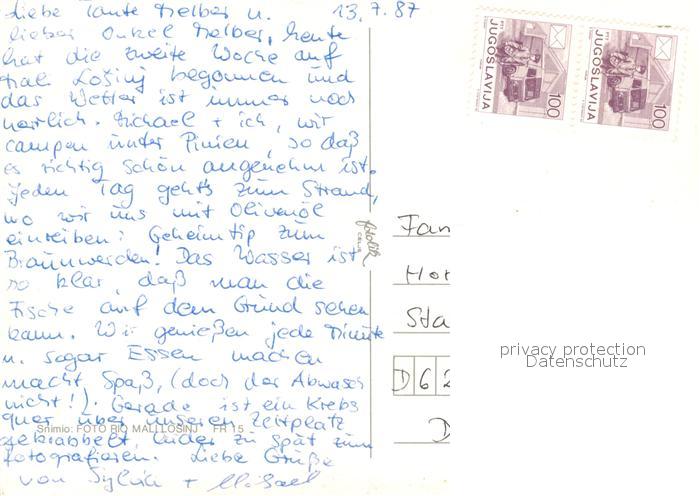 Liebe Tante Melber u.
13.7.87
lieber Onkel Melber, heute
hat die zweite Woche auf
Mali Lošinj begonnen und
das Wetter ist immer noch
herrlich. Michael + ich, wir
campen unter Pinien, so daß
es richtig schön angenehm ist.
Jeden Tag geht's zum Strand,
wo wir uns mit Olivenöl
einreiben: Geheimtip zum
Braunwerden! Das Wasser ist
so klar, daß man die
Fische auf dem Grund sehen
kann. Wir genießen jede Minute
u. sogar Essen machen
macht Spaß, (doch der Abwasch
nicht!). Gerade ist ein Krebs
quer über unseren Zeltplatz
gekrabbelt, leider zu spät zum
fotografieren. Liebe Grüße
von Sylvia + Michael
Snimio: FOTO RIO MALI LOSINJ FR 15
PTT JUGOSLAVIJA 100
PTT JUGOSLAVIJA 100
Fam
Hor
Sta
D 6 2
D
privacy protection
Datenschutz